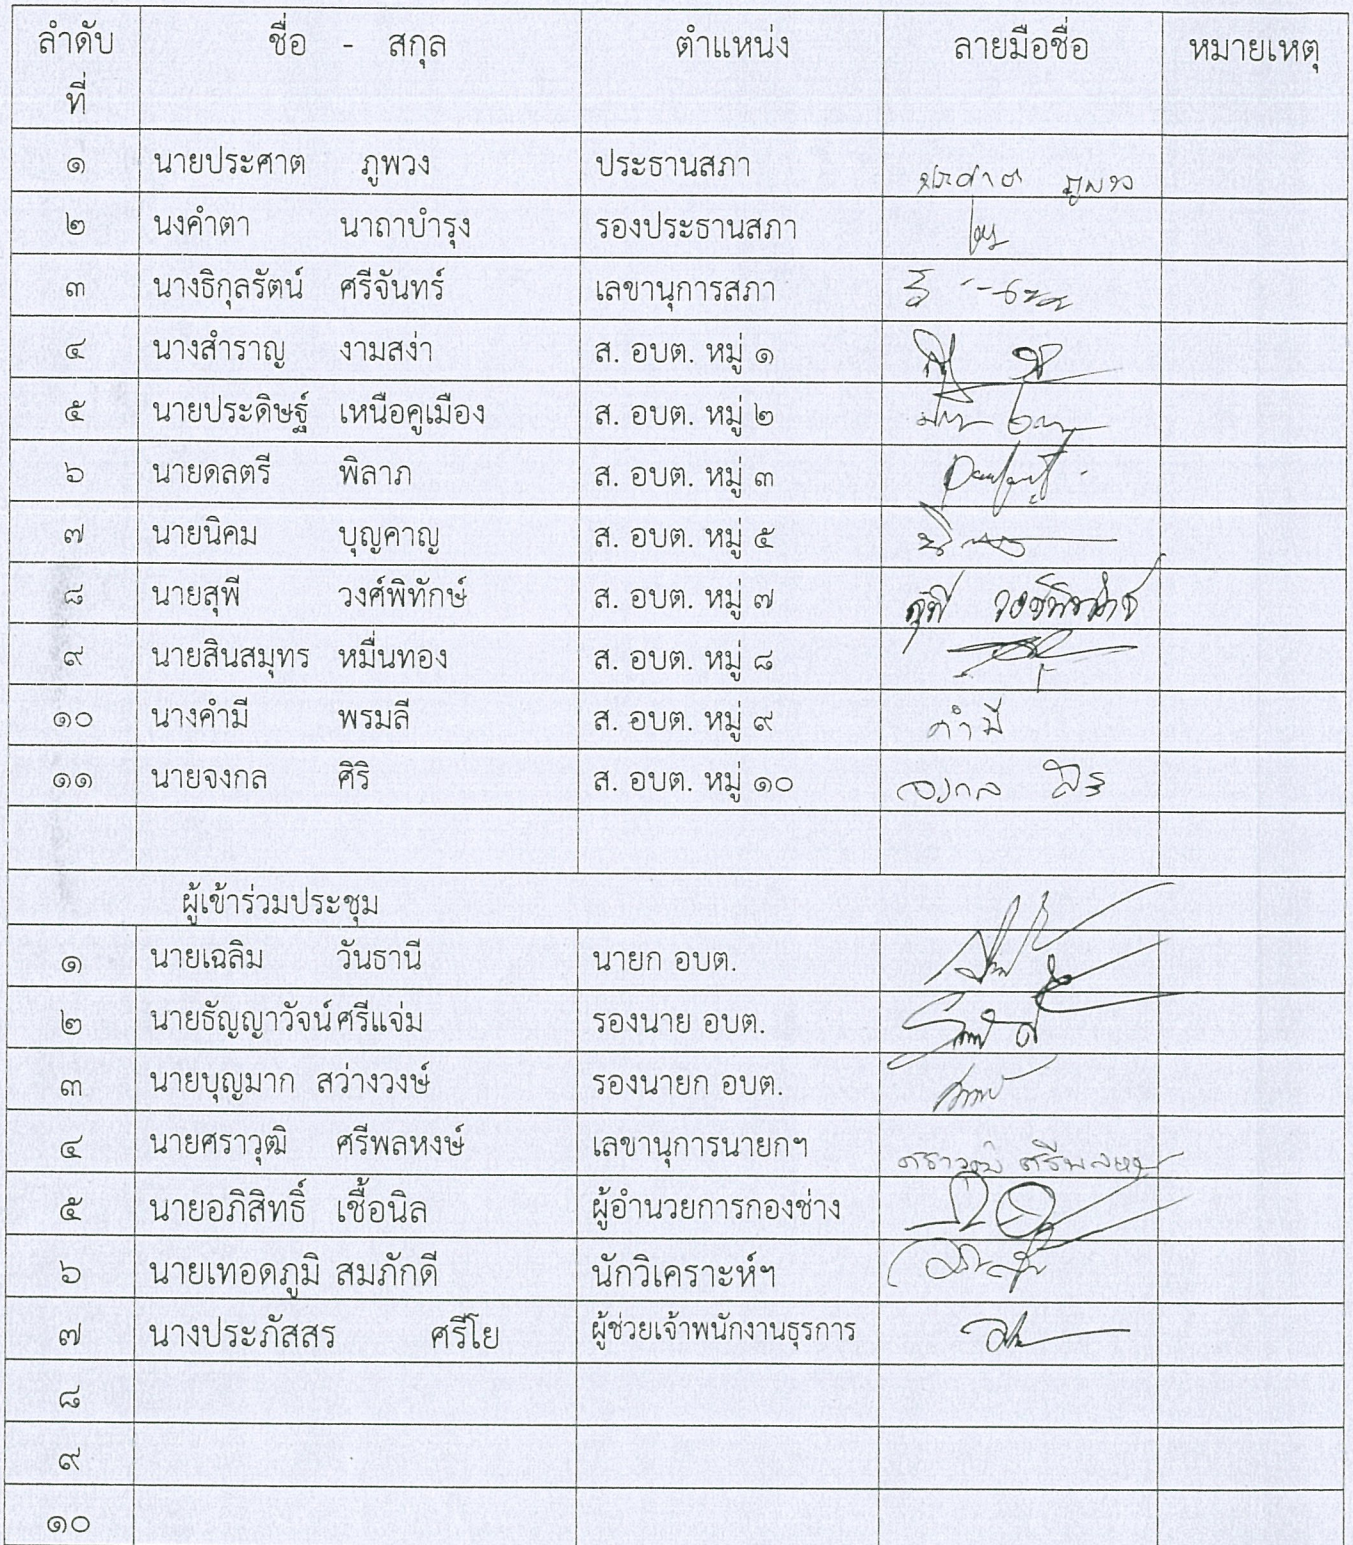 ลำดับ ชื่อ - สกุล ตำแหน่ง ลายมือชื่อ หมายเหตุ
ที่
๑ นายประศาต ภูพวง ประธานสภา ประศาต ภูพวง
๒ นงคำตา นาถาบำรุง รองประธานสภา
๓ นางธิกุลรัตน์ ศรีจันทร์ เลขานุการสภา
๔ นางสำราญ งามสง่า ส. อบต. หมู่ ๑
๕ นายประดิษฐ์ เหนือคูเมือง ส. อบต. หมู่ ๒
๖ นายดลตรี พิลาภ ส. อบต. หมู่ ๓
๗ นายนิคม บุญคาญ ส. อบต. หมู่ ๕
๘ นายสุพี วงศ์พิทักษ์ ส. อบต. หมู่ ๗ สุพี วงศ์พิทักษ์
๙ นายสินสมุทร หมื่นทอง ส. อบต. หมู่ ๘
๑๐ นางคำมี พรมลี ส. อบต. หมู่ ๙ คำมี
๑๑ นายจงกล ศิริ ส. อบต. หมู่ ๑๐ จงกล ศิริ
ผู้เข้าร่วมประชุม
๑ นายเฉลิม วันธานี นายก อบต.
๒ นายธัญญาวัจน์ ศรีแจ่ม รองนาย อบต.
๓ นายบุญมาก สว่างวงษ์ รองนายก อบต.
๔ นายศราวุฒิ ศรีพลหงษ์ เลขานุการนายกฯ ศราวุฒิ ศรีพลหงษ์
๕ นายอภิสิทธิ์ เชื้อนิล ผู้อำนวยการกองช่าง
๖ นายเทอดภูมิ สมภักดี นักวิเคราะห์ฯ
๗ นางประภัสสร ศรีโย ผู้ช่วยเจ้าพนักงานธุรการ
๘
๙
๑๐